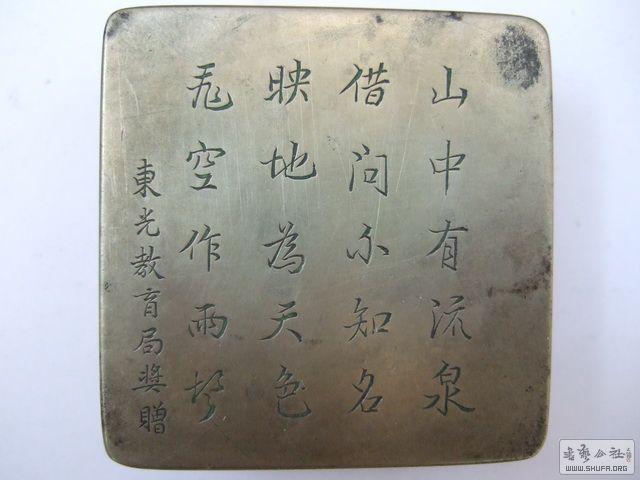 山中有流泉
借問不知名
映地為天色
飛空作雨聲
東光教育局奬贈
書藝公社
WWW.SHUFA.ORG